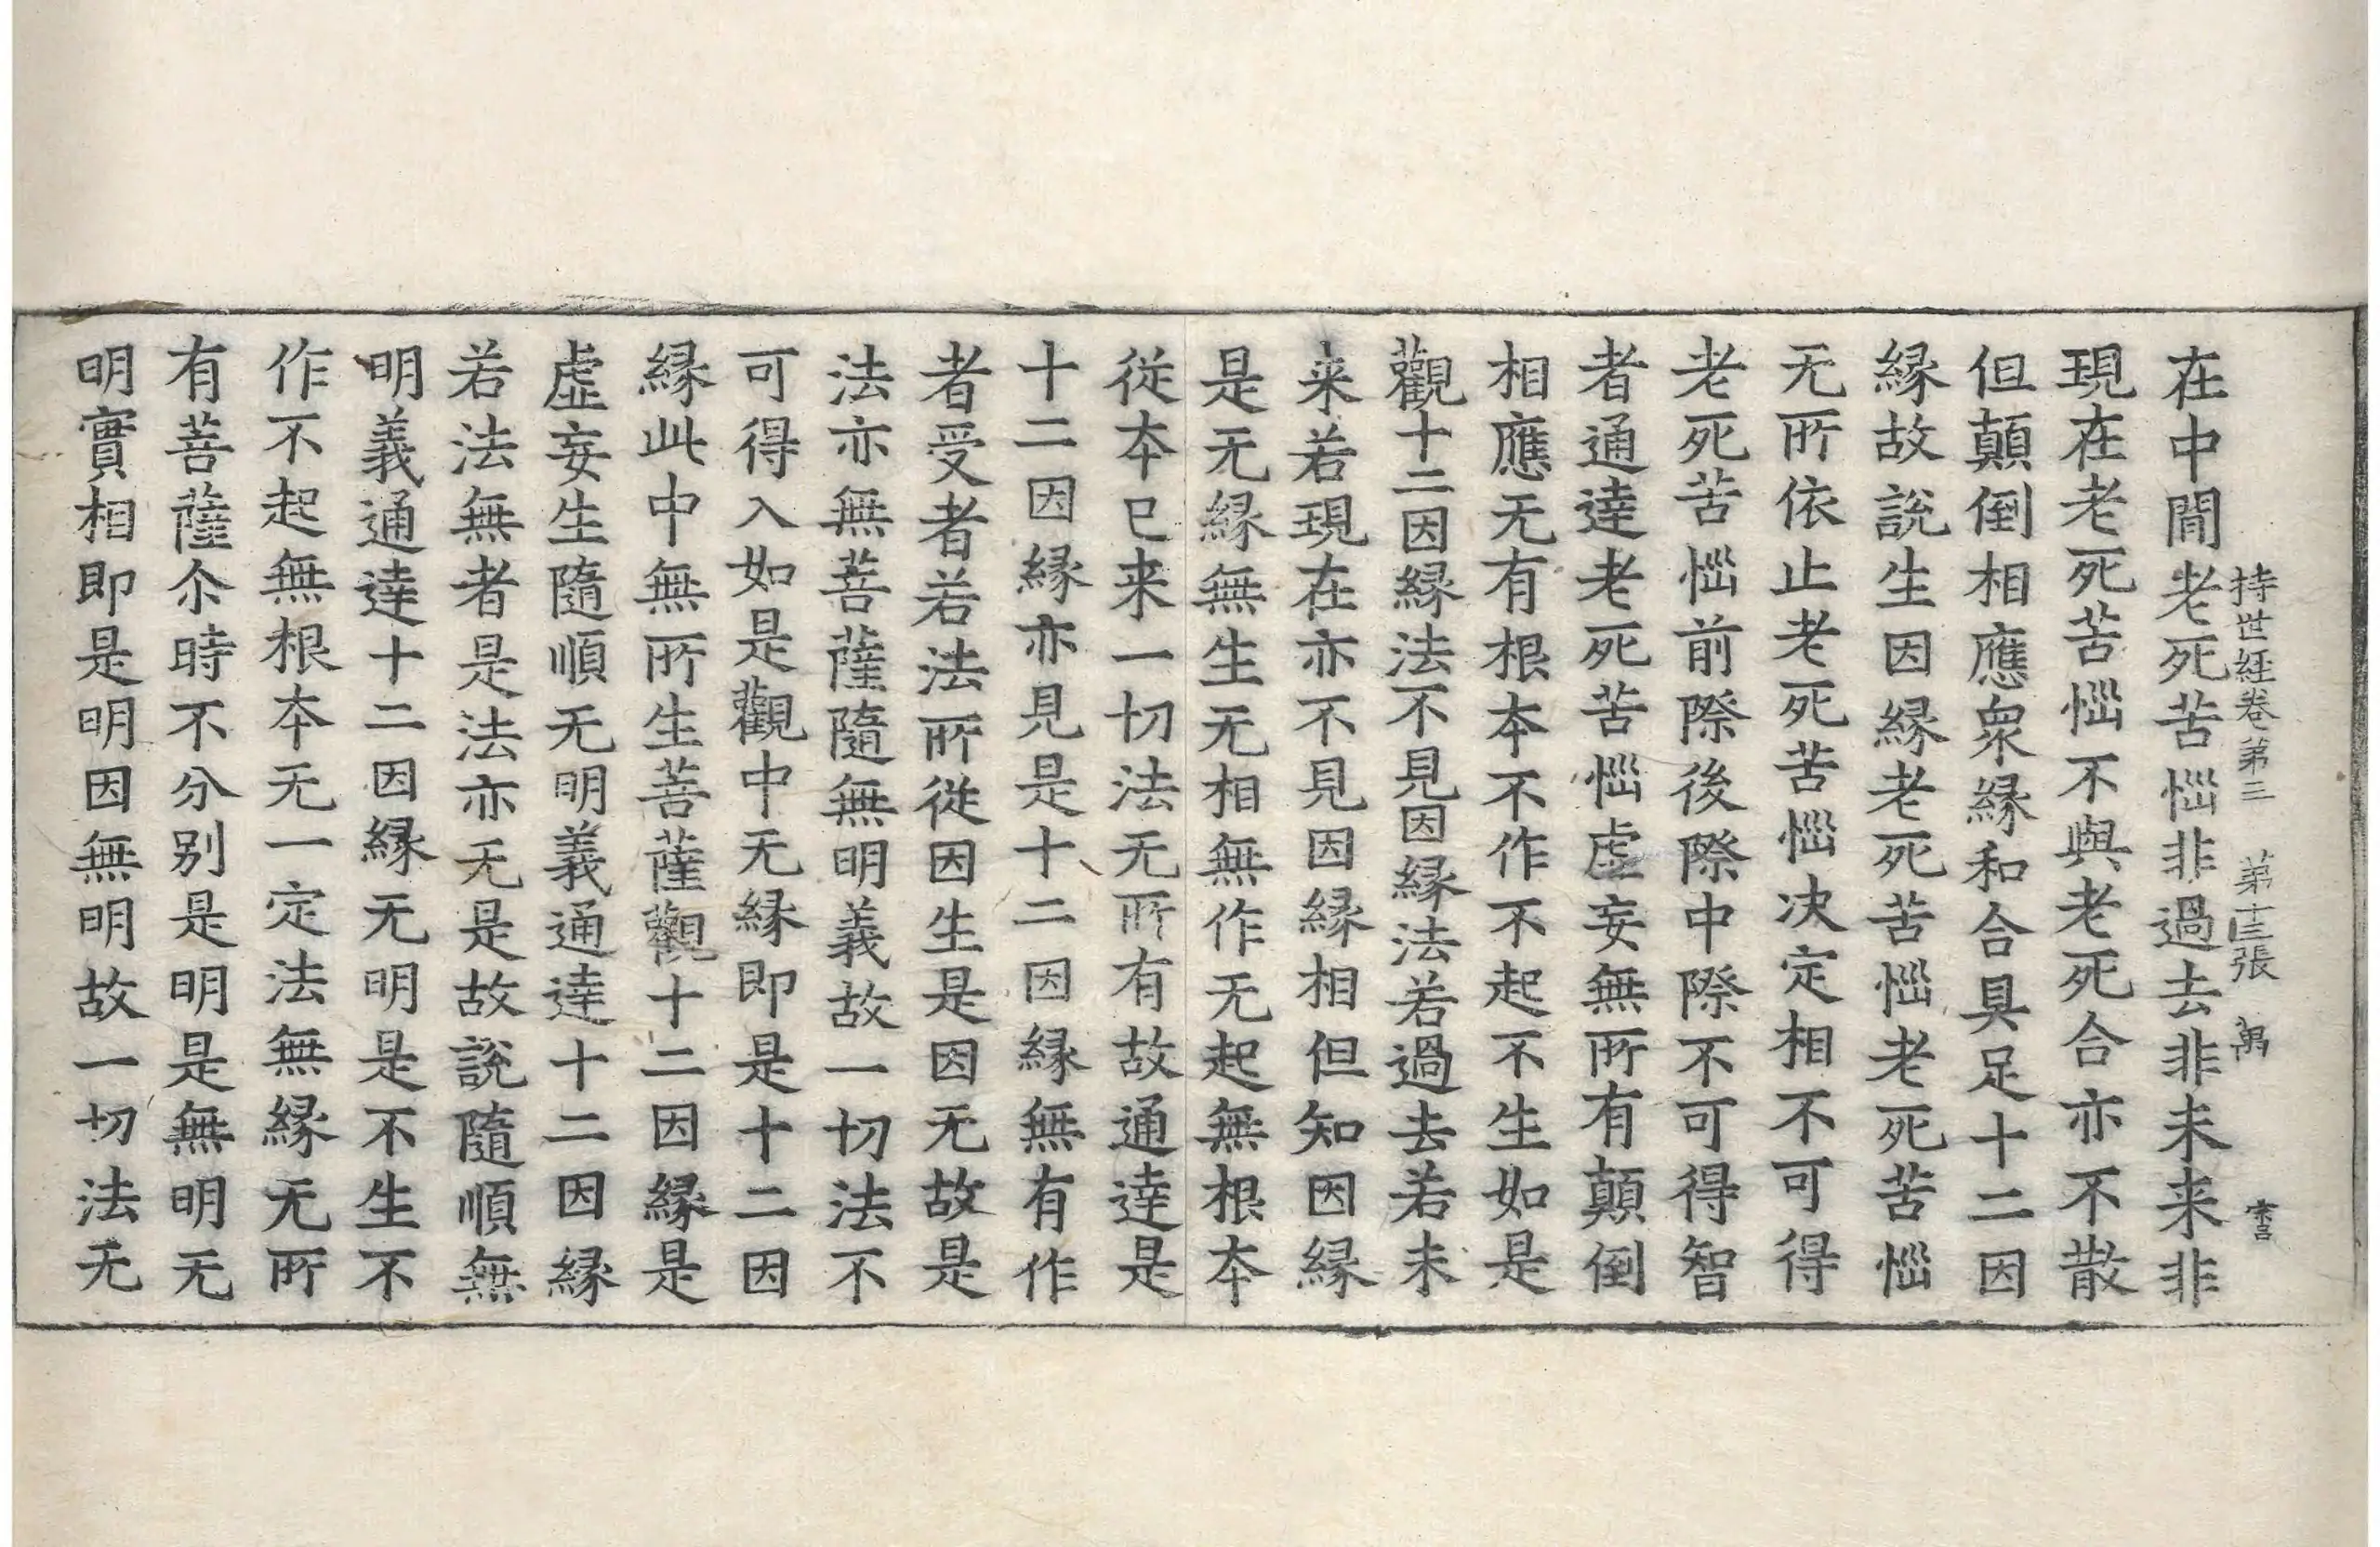 持世経卷第三　第十三張　萬
在中閒老死苦惱非過去非未来非
現在老死苦惱不與老死合亦不散
但顛倒相應衆縁和合具足十二因
縁故說生因縁老死苦惱老死苦惱
无所依止老死苦惱决定相不可得
老死苦惱前際後際中際不可得智
者通達老死苦惱虛妄無所有顛倒
相應无有根本不作不起不生如是
觀十二因縁法不見因縁法若過去若未
来若現在亦不見因縁相但知因縁
是无縁無生无相無作无起無根本
從本已来一切法无所有故通達是
十二因縁亦見是十二因縁無有作
者受者若法所從因生是因无故是
法亦無菩薩隨無明義故一切法不
可得入如是觀中无縁即是十二因
縁此中無所生菩薩觀十二因縁是
虛妄生隨順无明義通達十二因縁
若法無者是法亦无是故說隨順無
明義通達十二因縁无明是不生不
作不起無根本无一定法無縁无所
有菩薩尒時不分别是明是無明无
明實相即是明因無明故一切法无